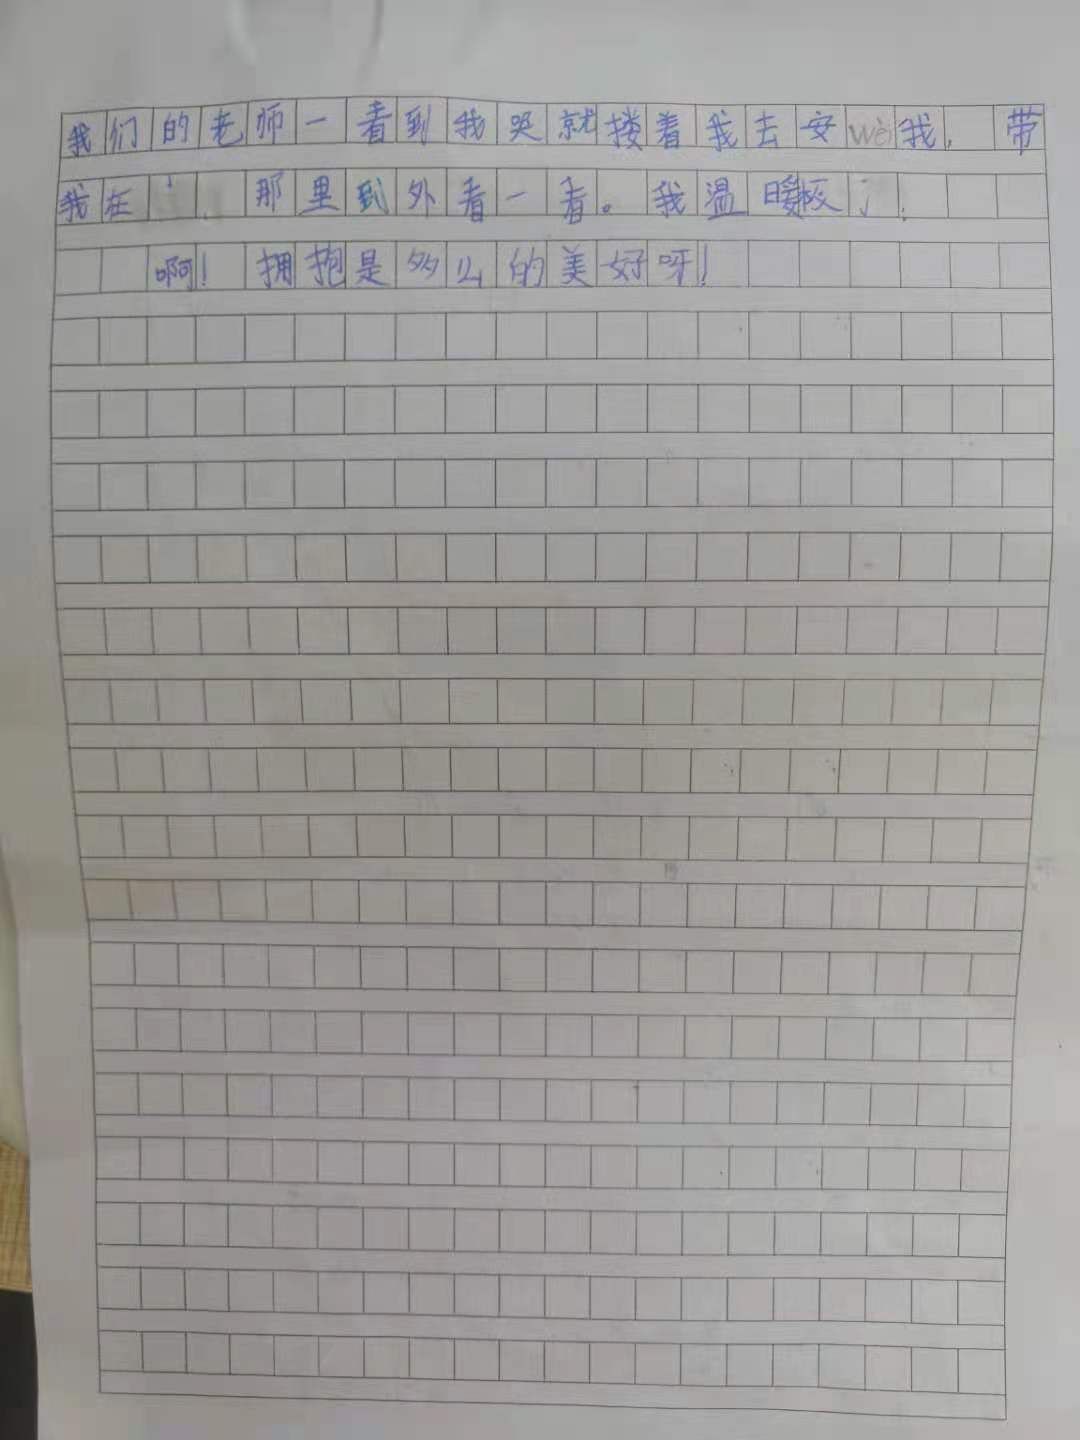 我们的老师一看到我哭就搂着我去安wèi我,带
我在那里到外看一看。我温暖极了!
啊!拥抱是多么的美好呀!